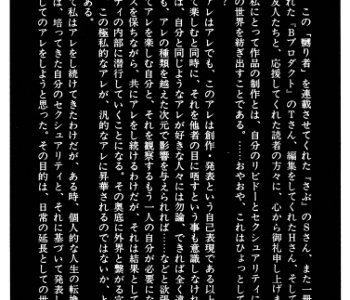 この『嬲り者』を連載させてくれた『さぶ』のSさん、また一冊
れた『Bプロダクト』のTさん、編集をしてくれたHさん、そし
友人たちと、応援してくれた読者の方々に、心から御礼申し上げま
にとって作品の制作とは、自分のリビドーとセクシュアリティー
の世界を紡ぎ出すことである。……おやおや、これはひょっとして
アレはアレでも、このアレは創作・発表という自己表現である以上
で楽しむと同時に、それを他者の目に晒すという事も意識しなけれ
は、自分と同じようなアレが好きな人々には勿論、できれば全く違
も、アレの種類を越えた次元で影響を与えられれば……などと欲張
てアレを楽しむ自分と、それを観察するもう一人の自分が必要にな
スを保ちながら、共にアレをし続けるわけだが、それは結果として
ティの内部に潜行していくことになる。その奥底に外界と繋がる
この極私的なアレが、汎的なアレに昇華されるのではないか、と
ある。
て私はアレをし続けてきたわけだが、ある時、個人的な人生の転換
は、培ってきた自分のセクシュアリティと、それに基づいて発表し
してのアレをしようと思った。その目的は、日常の延長としての